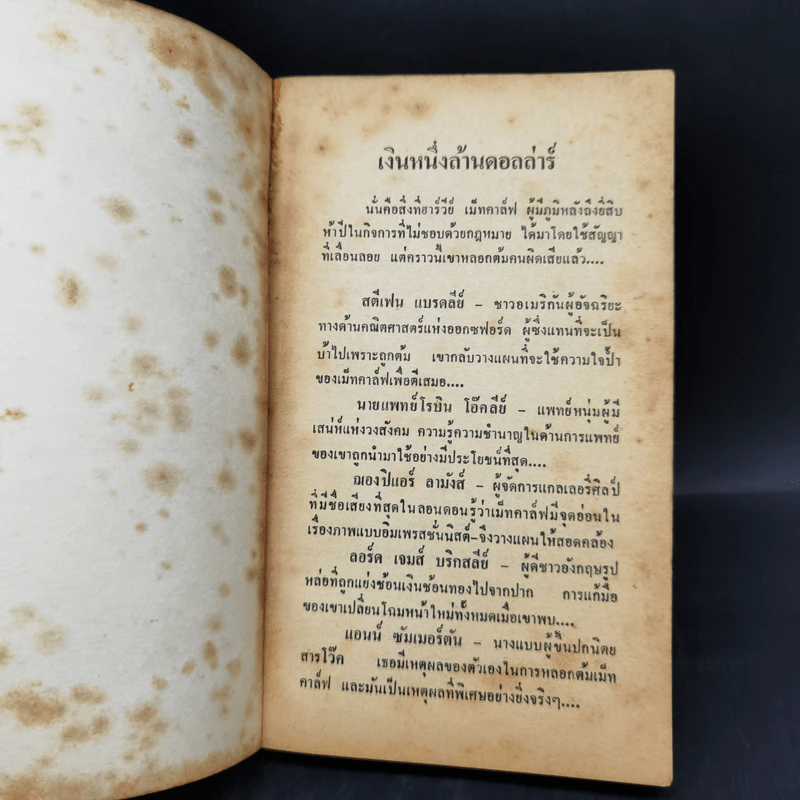 เงินหนึ่งล้านดอลล่าร์
นั่นคือสิ่งที่ฮาร์วีย์ เม็ทคาล์ฟ ผู้มีภูมิหลังถึงยี่สิบ
ห้าปีในกิจการที่ไม่ชอบด้วยกฎหมาย ได้มาโดยใช้สัญญา
ที่เลื่อนลอย แต่คราวนี้เขาหลอกต้มคนผิดเสียแล้ว....
สตีเฟน แบรดลีย์ – ชาวอเมริกันผู้อัจฉริยะ
ทางด้านคณิตศาสตร์แห่งออกซฟอร์ด ผู้ซึ่งแทนที่จะเป็น
บ้าไปเพราะถูกต้ม เขากลับวางแผนที่จะใช้ความใจป้ำ
ของเม็ทคาล์ฟเพื่อตีเสมอ....
นายแพทย์โรบิน โอ๊คลีย์ – แพทย์หนุ่มผู้มี
เสน่ห์แห่งวงสังคม ความรู้ความชำนาญในด้านการแพทย์
ของเขาถูกนำมาใช้อย่างมีประโยชน์ที่สุด....
ฌองปิแอร์ ลามังส์ – ผู้จัดการแกลเลอรี่ศิลป์
ที่มีชื่อเสียงที่สุดในลอนดอนรู้ว่าเม็ทคาล์ฟมีจุดอ่อนใน
เรื่องภาพแบบอิมเพรสชั่นนิสต์–จึงวางแผนให้สอดคล้อง
ลอร์ด เจมส์ บริกสลีย์ – ผู้ดีชาวอังกฤษรูป
หล่อที่ถูกแย่งช้อนเงินช้อนทองไปจากปาก การแก้มือ
ของเขาเปลี่ยนโฉมหน้าใหม่ทั้งหมดเมื่อเขาพบ....
แอนน์ ซัมเมอร์ตัน – นางแบบผู้ขึ้นปกนิตย
สารโว๊ค เธอมีเหตุผลของตัวเองในการหลอกต้มเม็ท
คาล์ฟ และมันเป็นเหตุผลที่พิเศษอย่างยิ่งจริงๆ....